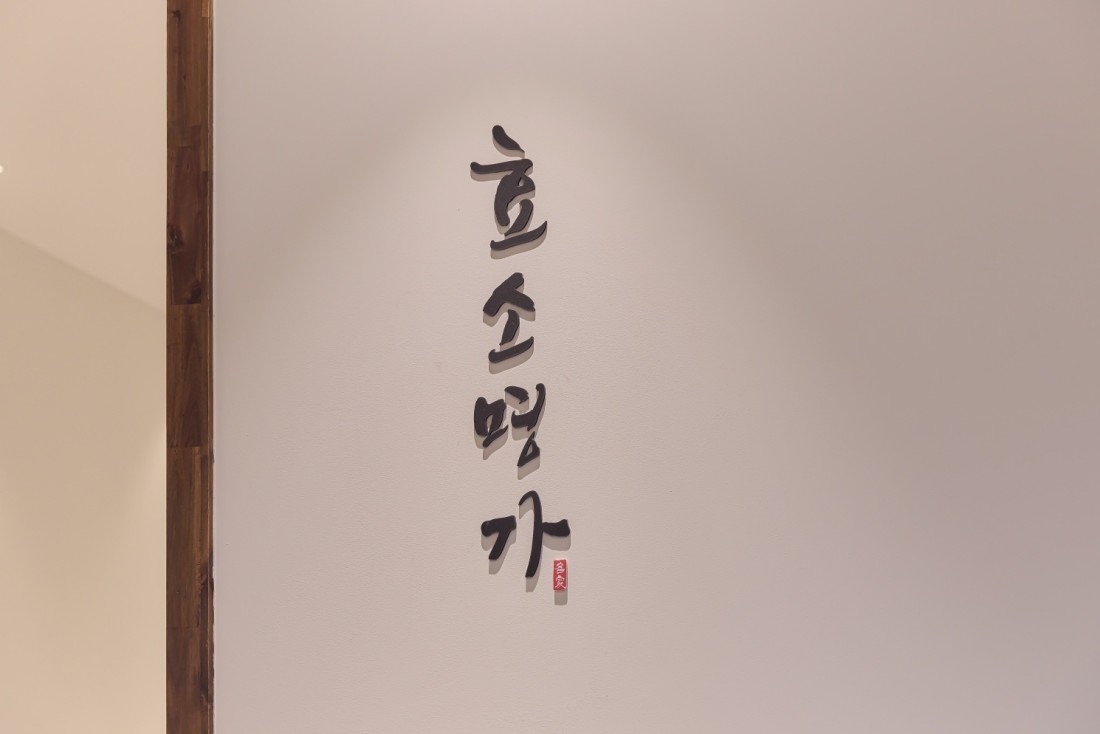 효소명가